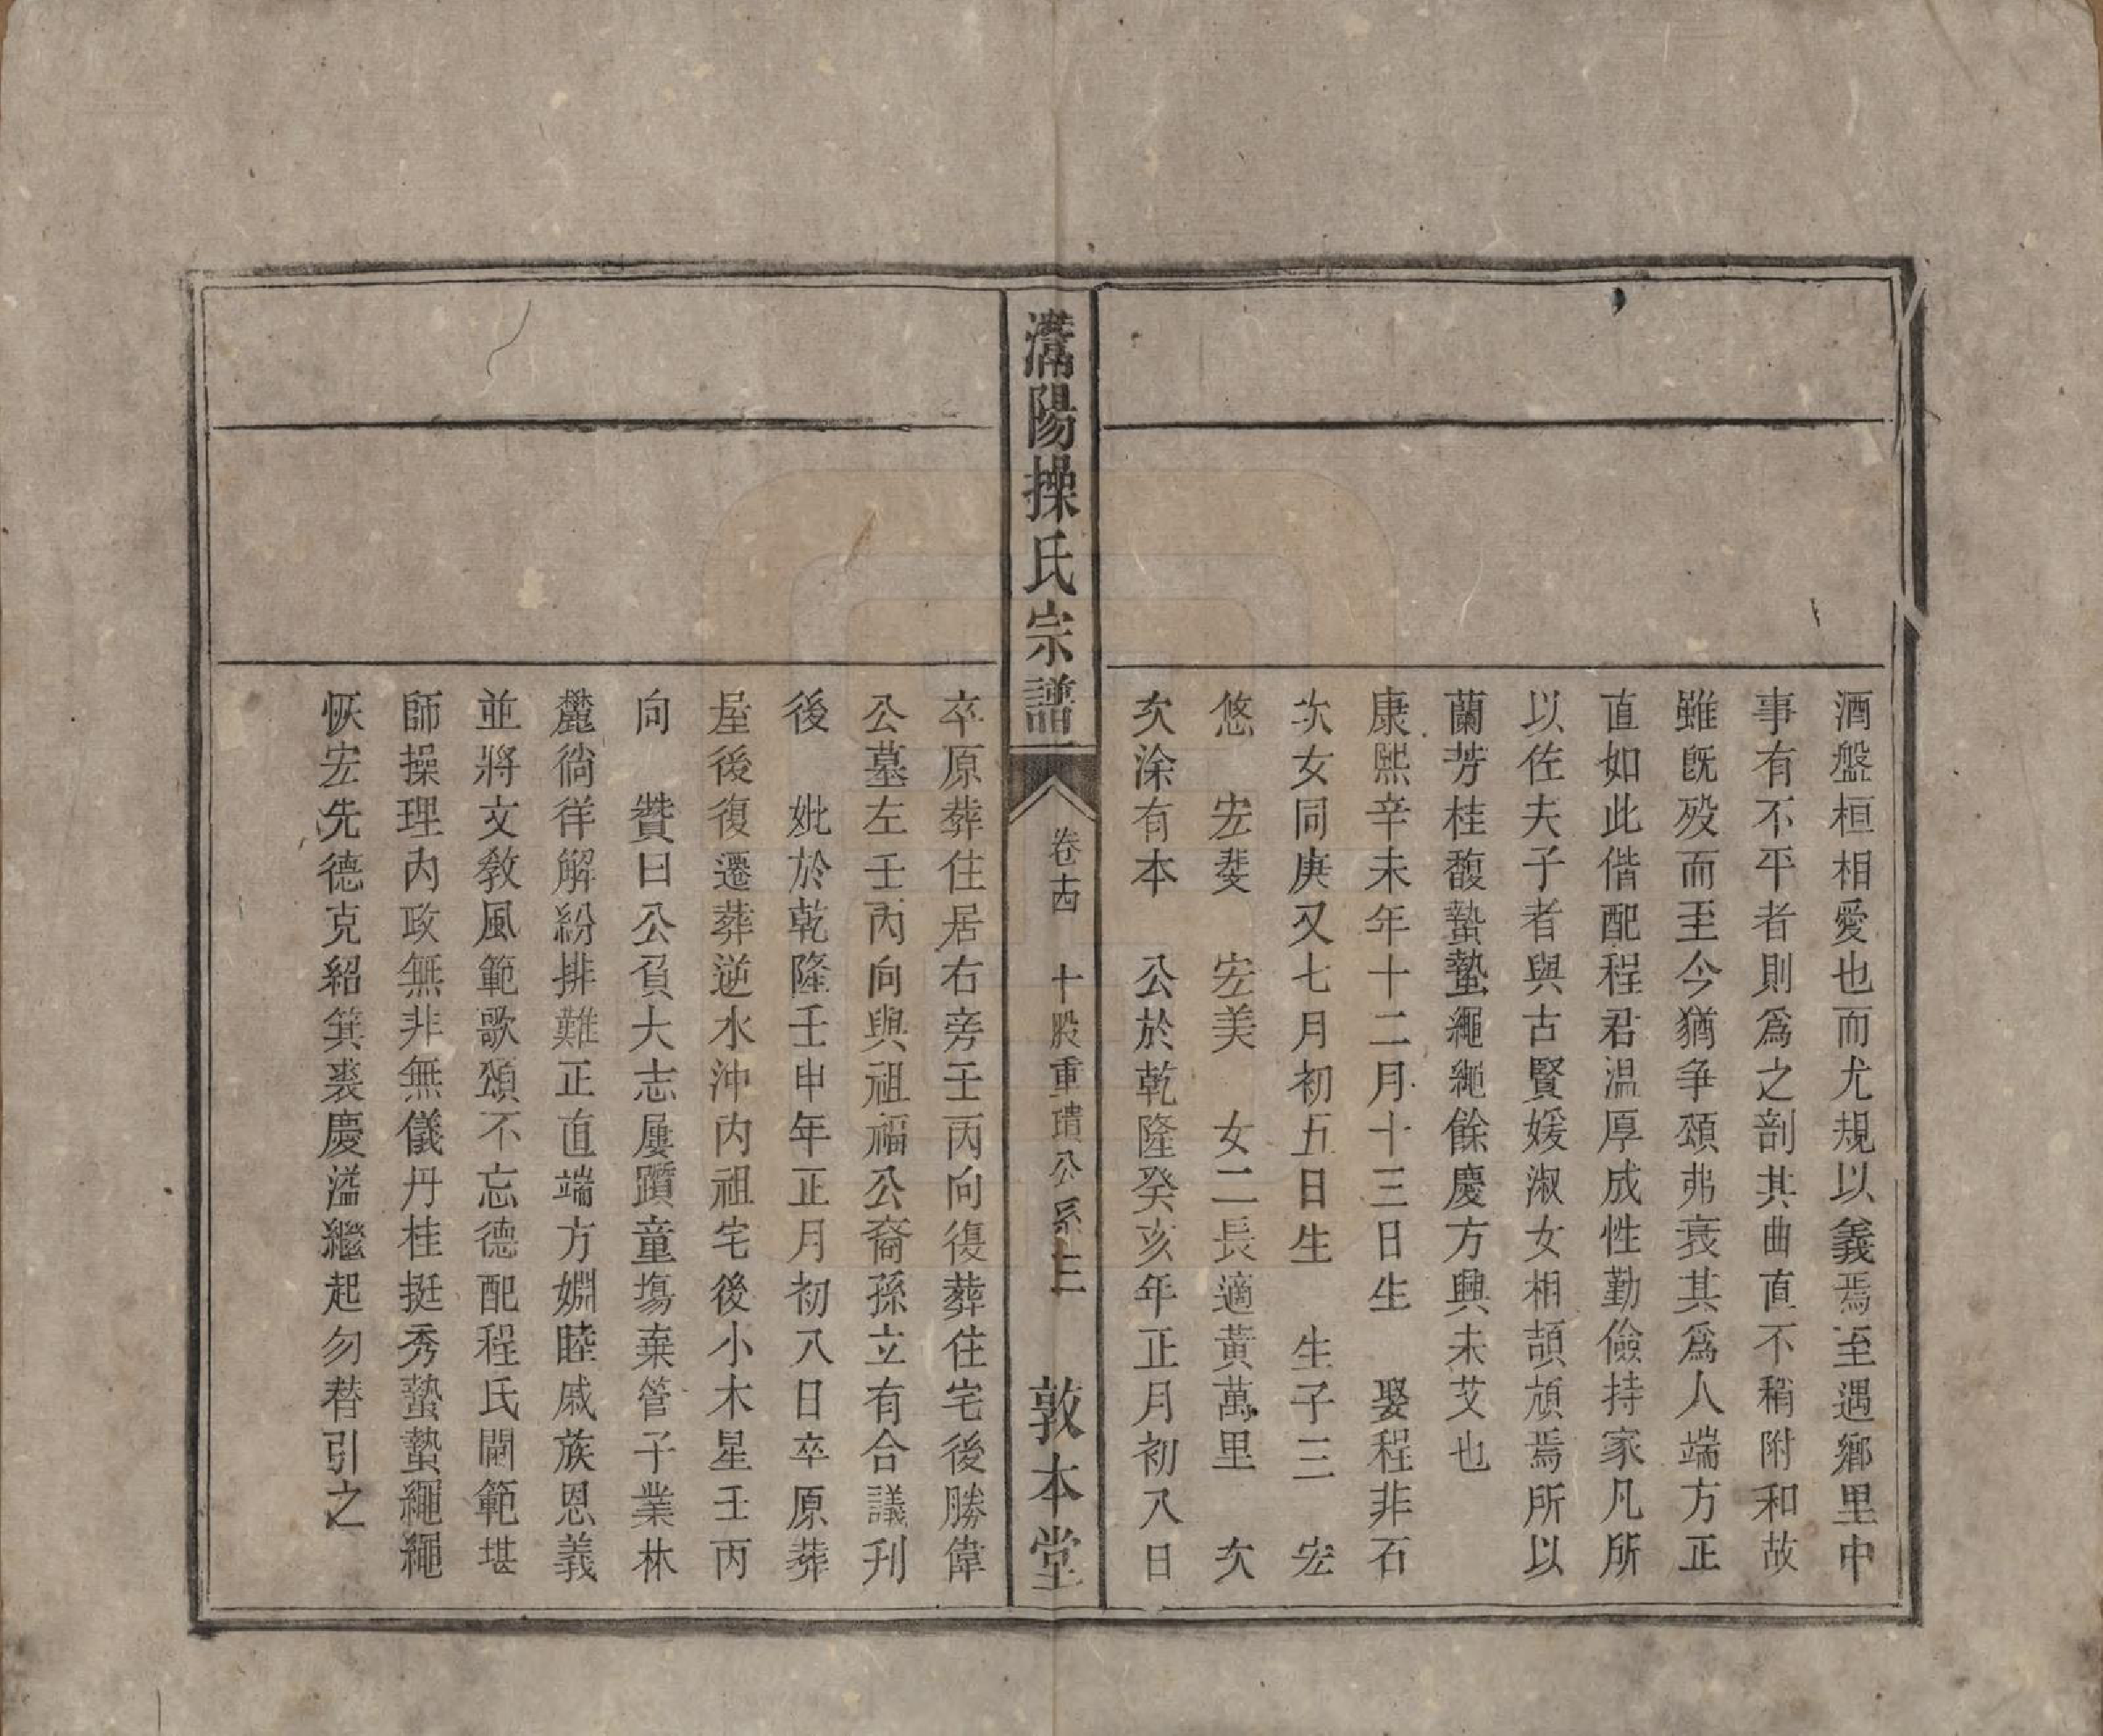 酒盤桓相愛也而尤規以義焉至遇鄉里中
事有不平者則為之剖其曲直不稍附和故
雖旣歿而至今猶争頌弗衰其為人端方正
直如此偕配程君温厚成性勤儉持家凡所
以佐夫子者與古賢媛淑女相頡頏焉所以
蘭芳桂馥蟄蟄繩繩餘慶方興未艾也
康熙辛未年十二月十三日生　娶程非石
次女同庚又七月初五日生　生子三　宏
悠　宏斐　宏美　女二長適黃萬里　次
次涂有本　公於乾隆癸亥年正月初八日
滿陽操氏宗譜
卷十四　十股重璝公系三
敦本堂
卒原葬住居右旁壬丙向復葬住宅後勝偉
公墓左壬丙向與祖福公裔孫立有合議刋
後　妣於乾隆壬申年正月初八日卒原葬
屋後復遷葬逆水沖内祖宅後小木星壬丙
向　贊曰公負大志屢躓童塲棄管子業林
麓徜徉解紛排難正直端方婣睦戚族恩義
並將文敎風範歌頌不忘德配程氏閫範堪
師操理内政無非無儀丹桂挺秀蟄蟄繩繩
恢宏先德克紹箕裘慶溢繼起勿替引之